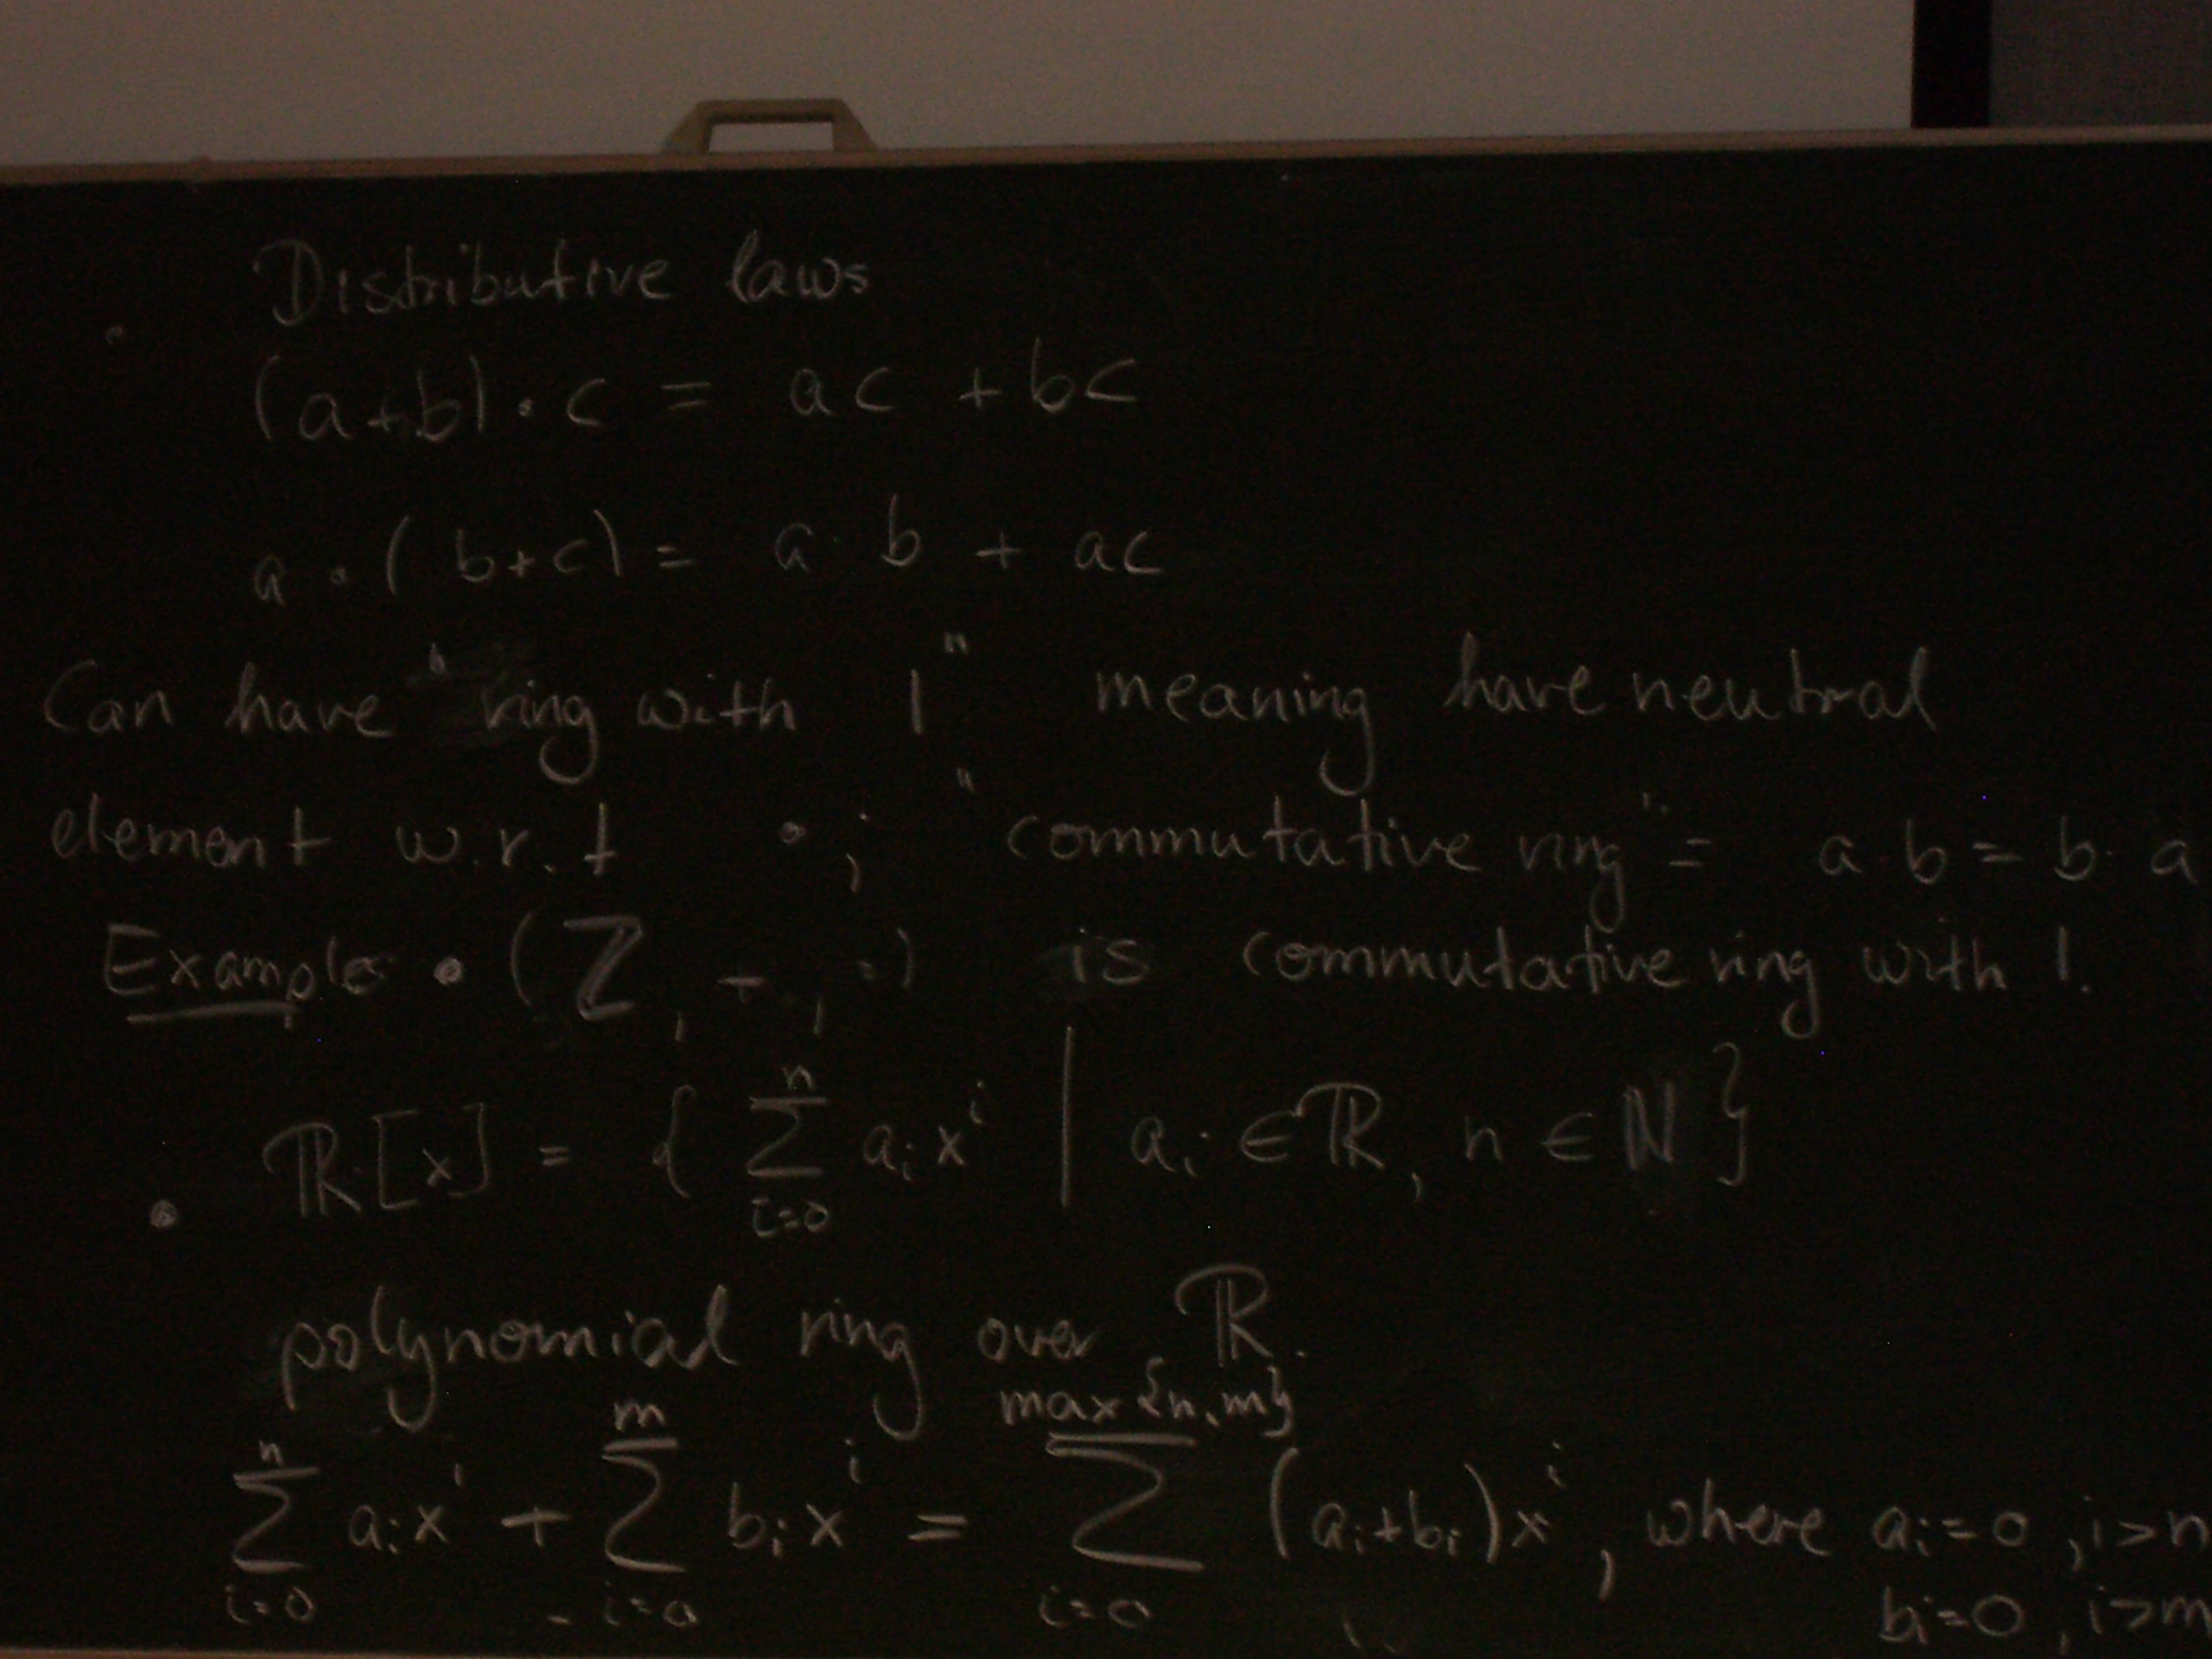 Distributive laws
(a+b)·c = ac + bc
a·(b+c) = a·b + ac
Can have "ring with 1" meaning have neutral
element w.r.t · ; "commutative ring" = a·b = b·a
Examples • (ℤ, +, ·) is commutative ring with 1.
• ℝ[x] = { ∑_{i=0}^{n} a_i x^i | a_i ∈ ℝ, n ∈ ℕ }
polynomial ring over ℝ.
∑_{i=0}^{n} a_i x^i + ∑_{i=0}^{m} b_i x^i = ∑_{i=0}^{max{n,m}} (a_i+b_i)x^i, where a_i=0, i>n
b_i=0, i>m